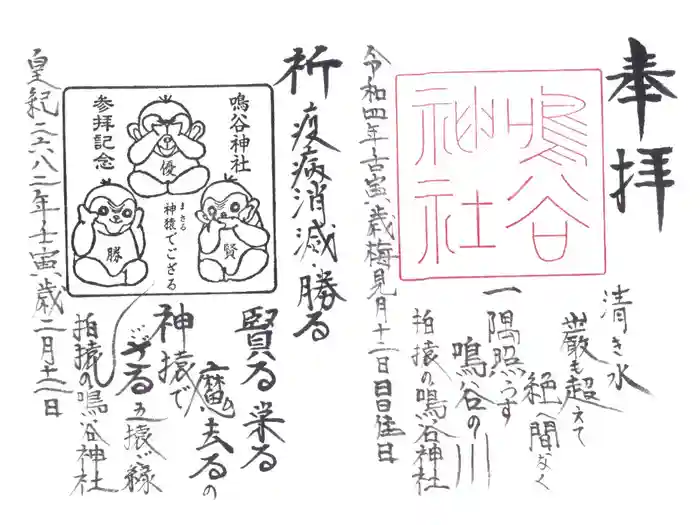 奉拝
鳴谷
神社
清き水
巌も超えて
絶へ間なく
一隅照らす
鳴谷の川
拍猿の鳴谷神社
令和四年壬寅歳梅見月十二日
祈 疫病消滅・勝る
鳴谷神社
参拝記念
優
勝
賢
まさる
神猿でござる
賢る栄る
魔去るの
神猿で
ござる
拍猿の鳴谷神社
皇紀二六八二年壬寅歳二月十二日